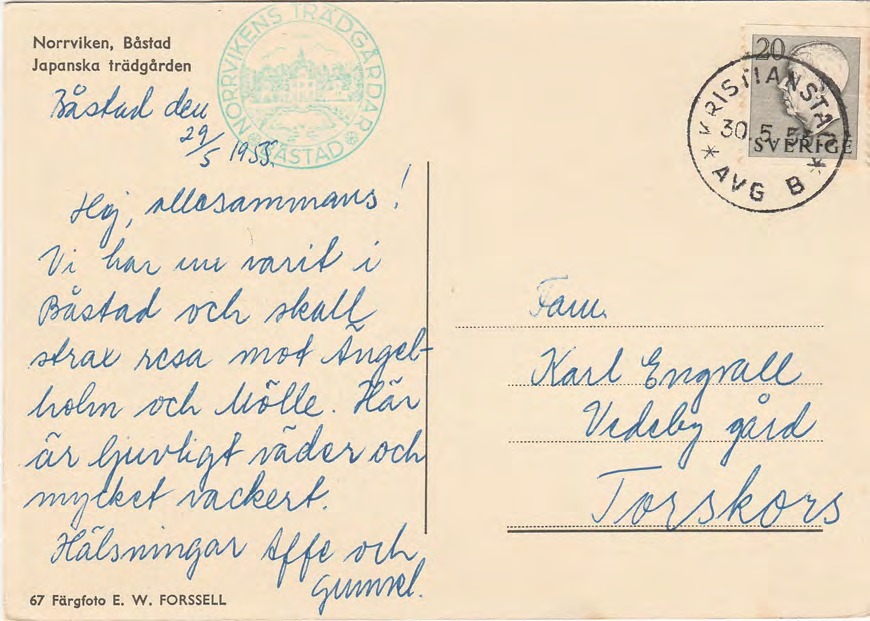 Norrviken, Båstad
Japanska trädgården
NORRVIKENS TRÄDGÅRDAR
BÅSTAD
Båstad den
29/5 1955.
Hej, allesammans!
Vi har nu varit i
Båstad och skall
strax resa mot Ängel-
holm och Mölle. Här
är ljuvligt väder och
mycket vackert.
Hälsningar Affe och
Gunvel.
67 Färgfoto E. W. FORSSELL
20
SVERIGE
KRISTIANSTAD
30.5.55
AVG B
Fam.
Karl Engvall
Vedeby gård
Torskors